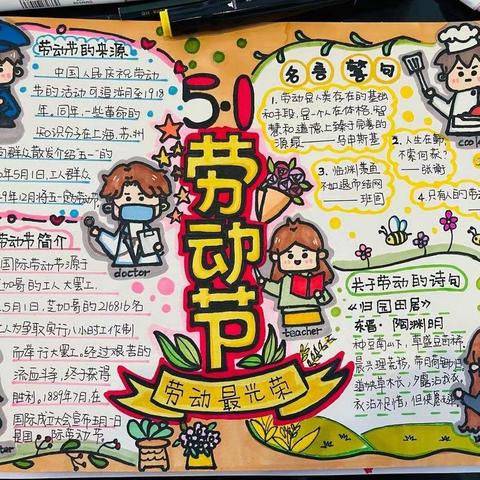 劳动节的来源
中国人民庆祝劳动
节的活动可追溯至1918
年。同年，一些革命的
知识分子在上海、苏州
向群众散发介绍"五一"的
年5月1日，工人群众
49年12月将五一定为劳动
劳动节简介
国际劳动节源于
芝加哥的工人大罢工。
年5月1日，芝加哥的216816名
工人为争取实行八小时工作制
而举行大罢工。经过艰苦的
流血斗争，终于获得
胜利。1889年7月在
国际成立大会宣布5月一日
是国际劳动节
5·1
劳动节
劳动最光荣
doctor
teacher
cook
名言警句
1. 劳动是人类存在的基础
和手段，是一个人在体格、智
慧和道德上臻于完善的
源泉——马申斯基
2. 人生在勤，
不索何获？
——张衡
3. 临渊羡鱼
不如退而结网
——班固
4. 只有人的劳动
关于劳动的诗句
《归园田居》
东晋·陶渊明
种豆南山下，草盛豆苗稀。
晨兴理荒秽，带月荷锄归。
道狭草木长，夕露沾我衣。
衣沾不足惜，但使愿无违